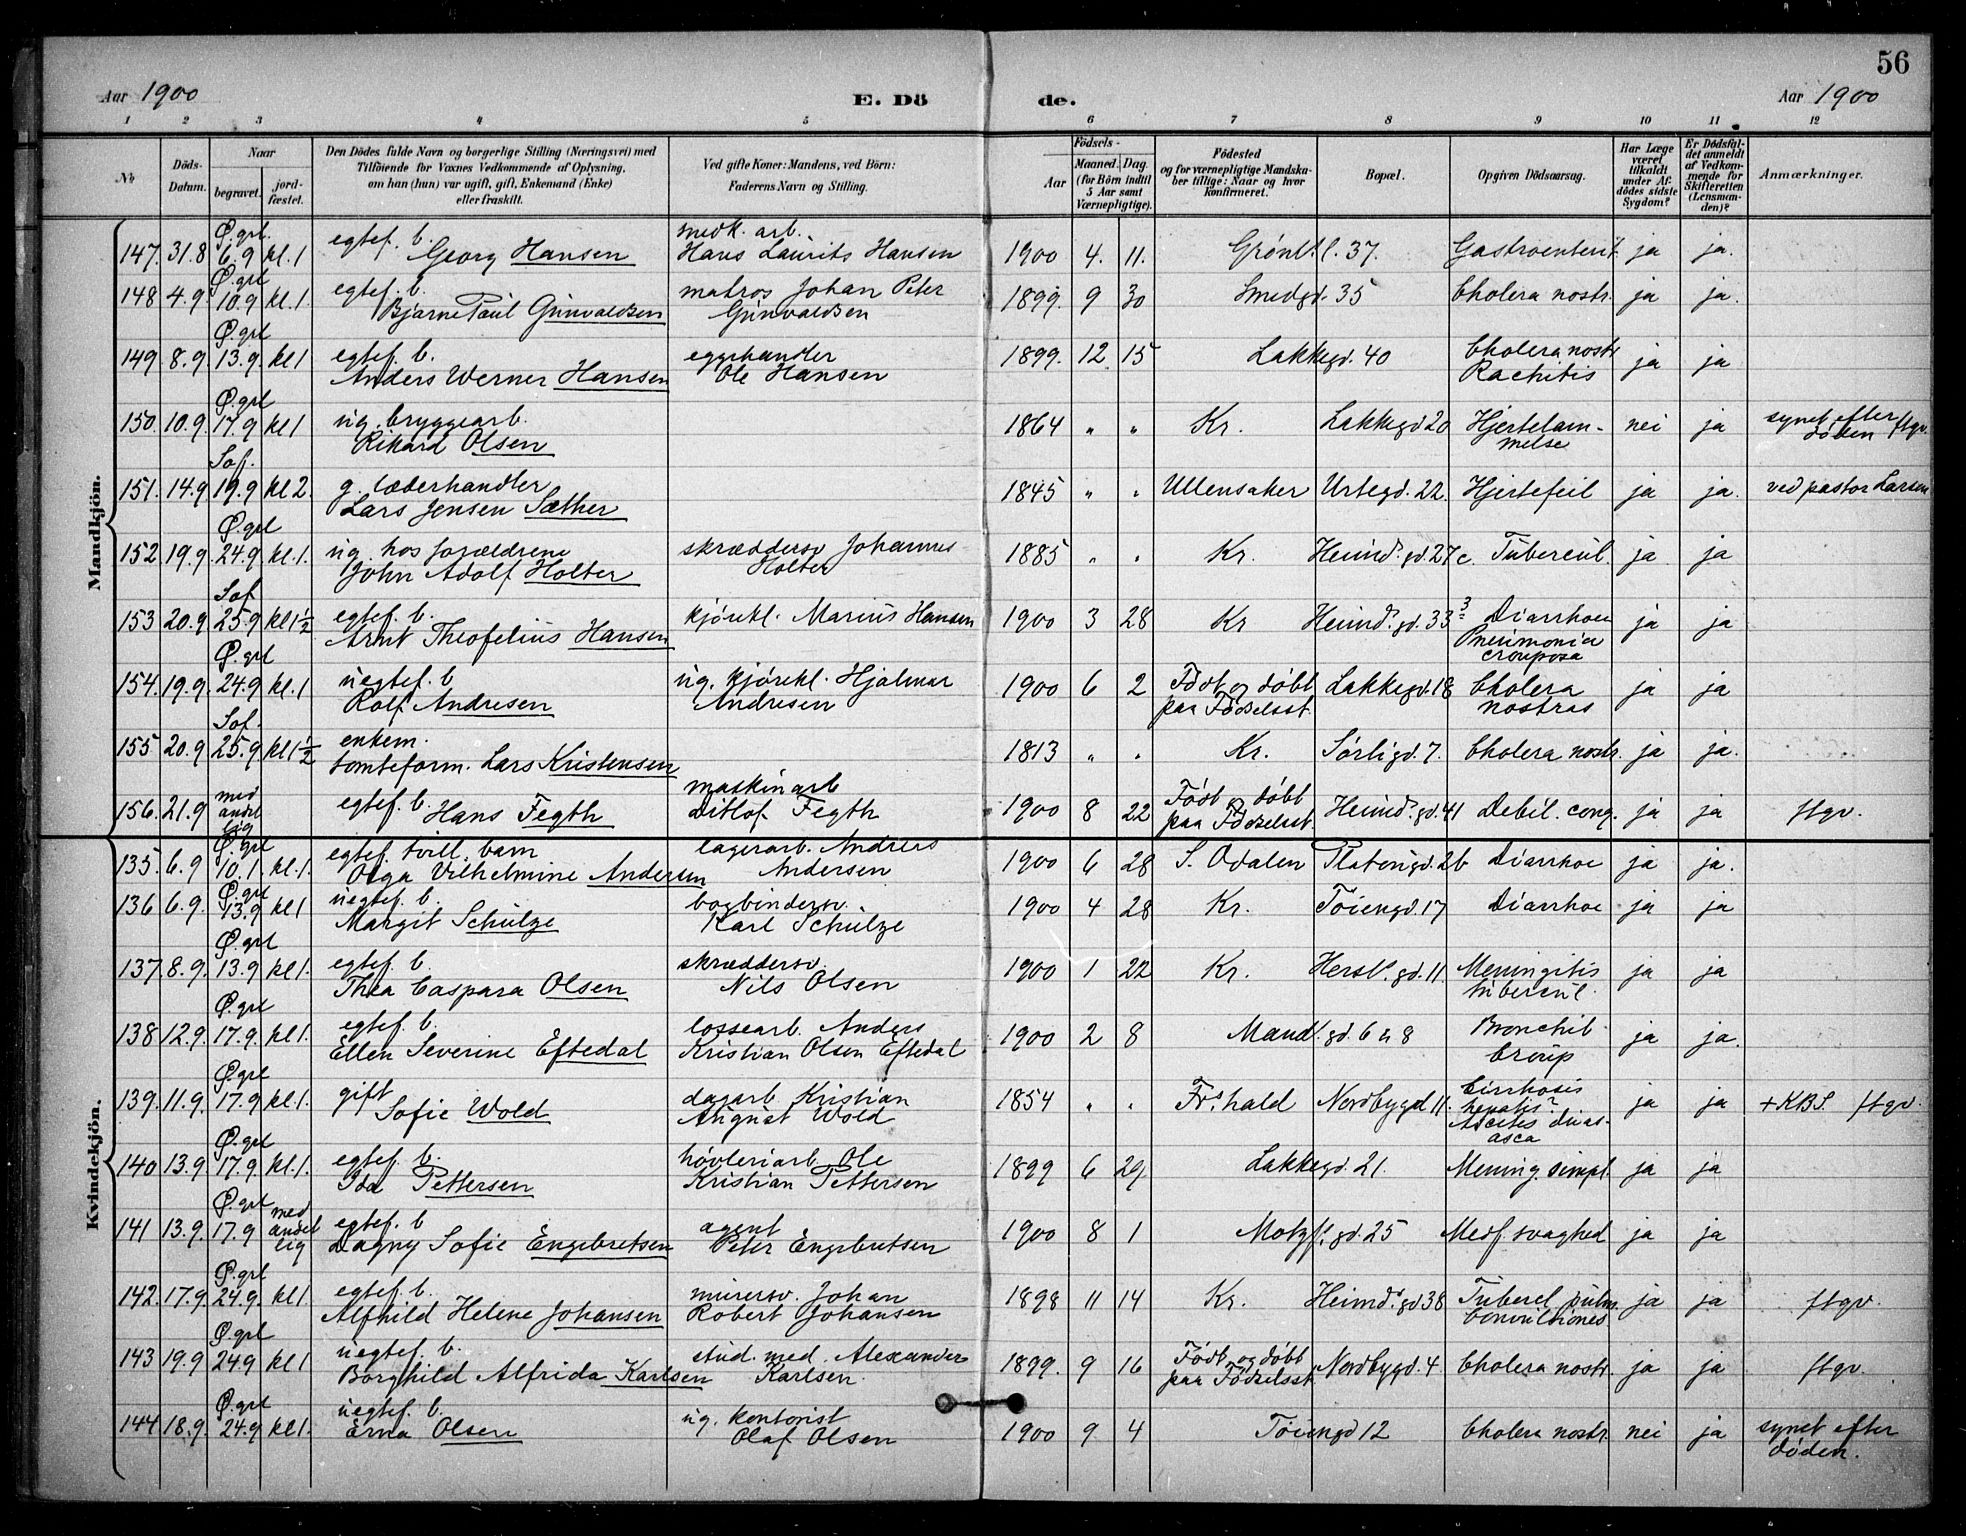 56
Aar 1900 E. Dö de. Aar 1900
1 2 3 4 5 6 7 8 9 10 11 12
No
Döds-Datum.
Naar
begravet.
jord-fæstet.
Den Dödes fulde Navn og borgerlige Stilling (Næringsvei) med
Tilföiende for Voxnes Vedkommende af Oplysning,
om han (hun) var ugift, gift, Enkemand (Enke)
eller fraskilt.
Ved gifte Koner: Mandens, ved Börn:
Faderens Navn og Stilling.
Födsels-
Aar
Maaned. Dag.
(for Börn indtil
5 Aar samt
Værnepligtige).
Födested
og for værnepligtige Mandska-
ber tillige: Naar og hvor
konfirmeret.
Bopæl.
Opgiven Dödsaarsag.
Har Læge
været
tilkaldt
under Af-
dödes sidste
Sygdom?
Er Dödsfal-
det anmeldt
af Vedkom-
mende for
Skifteretten
(Lensman-
den)?
Anmærkninger.
Mandkjön.
Ø.grl. egtef. b. smedk. arb.
147. 31.8 6.9 kl.1 Georg Hansen Hans Laurits Hansen 1900 4. 11. Grønl.l. 37. Gastroenterit. ja ja.
Ø.grl egtef. b. matros Johan Peter
148 4.9. 10.9 kl.1. Bjarne Paul Grinvaldsen Grinvaldsen 1899. 9 30 Smedgd. 35 Cholera nostr. ja ja.
Ø.grl egtef. b. eggehandler Cholera nostr
149. 8.9. 13.9. kl1 Anders Werner Hansen Ole Hansen 1899. 12. 15 Lakkegd. 40 Rachitis ja ja
Ø.grl ug. bryggearb. synet efter
150. 10.9. 17.9 kl1 Rikard Olsen 1864 „ „ Kr. Lakkegd 20 Hjertelam-melse nei ja døden ftgv.
Sof. g. læderhandler
151. 14.9 19.9 kl2. Lars Jensen Sæther 1845 „ „ Ullensaker Urtegd. 22. Hjertefeil ja ja. ved pastor Larsen
Ø.grl ug. hos forældrene skræddersv Johannes
152. 19.9. 24.9 kl.1. John Adolf Holter Holter 1885 „ „ Kr. Heimd.s gd. 27c. Tubercul. ja ja
Sof egtef. b.
153 20.9 25.9 kl1½ Arnt Theofelius Hansen kjørekl. Marius Hansen 1900 3 28 Kr Heimd.s gd. 33 Diarrhoe ja ja
Pneumonia
crouposa
Ø.grl uegtef. b ug. kjørekl. Hjalmar
154. 19.9. 24.9 kl.1 Rolf Andresen Andresen 1900 6 2 Født og døbt Lakkegd. 18 Cholera ja ja
paa Fødselsst. nostras
Sof. enkem.
155 20.9 25.9 kl1½ tomteform. Lars Kristensen 1813 „ „ Kr. Sørligd. 7. Cholera nostr. ja ja.
med maskinarb
156. 21.9 andet lig egtef. b. Hans Fegth Ditlof Fegth 1900 8 22 Født og døbt Heimd.s gd. 41 Debil. cong. ja ja ftgv.
paa Fødselsst.
Kvindekjön.
Ø.grl egtef. tvill. barn lagerarb. Andreas
135. 6.9 10.1. kl.1. Olga Vilhelmine Andersen Andersen 1900 6 28 S. Odalen Platougd. 2b Diarrhoe ja ja.
Ø.grl uegtef. b. bogbindersv.
136 6.9. 13.9 kl1 Margit Schulze Karl Schulze 1900 4 28 Kr. Tøiengd. 17 Diarrhoe ja ja
Ø.grl egtef. b. skræddersv.
137. 8.9. 13.9 kl1. Thea Caspara Olsen Nils Olsen 1900 1 22 Kr. Hersl. gd. 11. Meningitis ja ja
tubercul.
Ø.grl egtef. b. lossearb. Anders
138 12.9. 17.9. kl1. Ellen Severine Eftedal Kristian Olsen Eftedal 1900 2 8 Mand. gd. 6 & 8 Bronchit. ja ja.
croup
Ø.grl gift dagarb Kristian Cirrhosis
139. 11.9. 17.9 kl.1. Sofie Wold August Wold 1854 „ „ Fr.s hald Nordbygd 11. hepatis? ja ja + KBS. ftgv.
Ascites
Ø.grl egtef. b. høvleriarb. Ole
140. 13.9. 17.9. kl.1. Ida Pettersen Kristian Pettersen 1899 6 29 Lakkegd. 21. Mening. simpl. ja ja
Ø.grl egtef. b agent
141 13.9. 17.9 med andet lig Dagny Sofie Engebretsen Peter Engebretsen 1900 8 1 Motzf. gd. 25 Medf. svaghed ja ja
Ø.grl egtef. b. murersv. Johan
142. 17.9. 24.9. kl1. Alfhild Helene Johansen Robert Johansen 1898 11 14 Kr. Heimd.s gd 38 Tubercl. pulm. ja ja ftgv.
convulsiones
Ø.grl uegtef. b. stud. med. Alexander
143 19.9 24.9 kl1 Borghild Alfrida Karlsen Karlsen. 1899. 9 16 Født og døbt Nordbygd. 4 Cholera nostr. ja ja ftgv.
paa Fødselsst.
Ø.grl uegtef. b. ug. kontorist
144 18.9. 24.9 kl1. Erna Olsen Olaf Olsen 1900 9 4 Tøiengd 12 Cholera nostr. nei ja synet efter
døden.